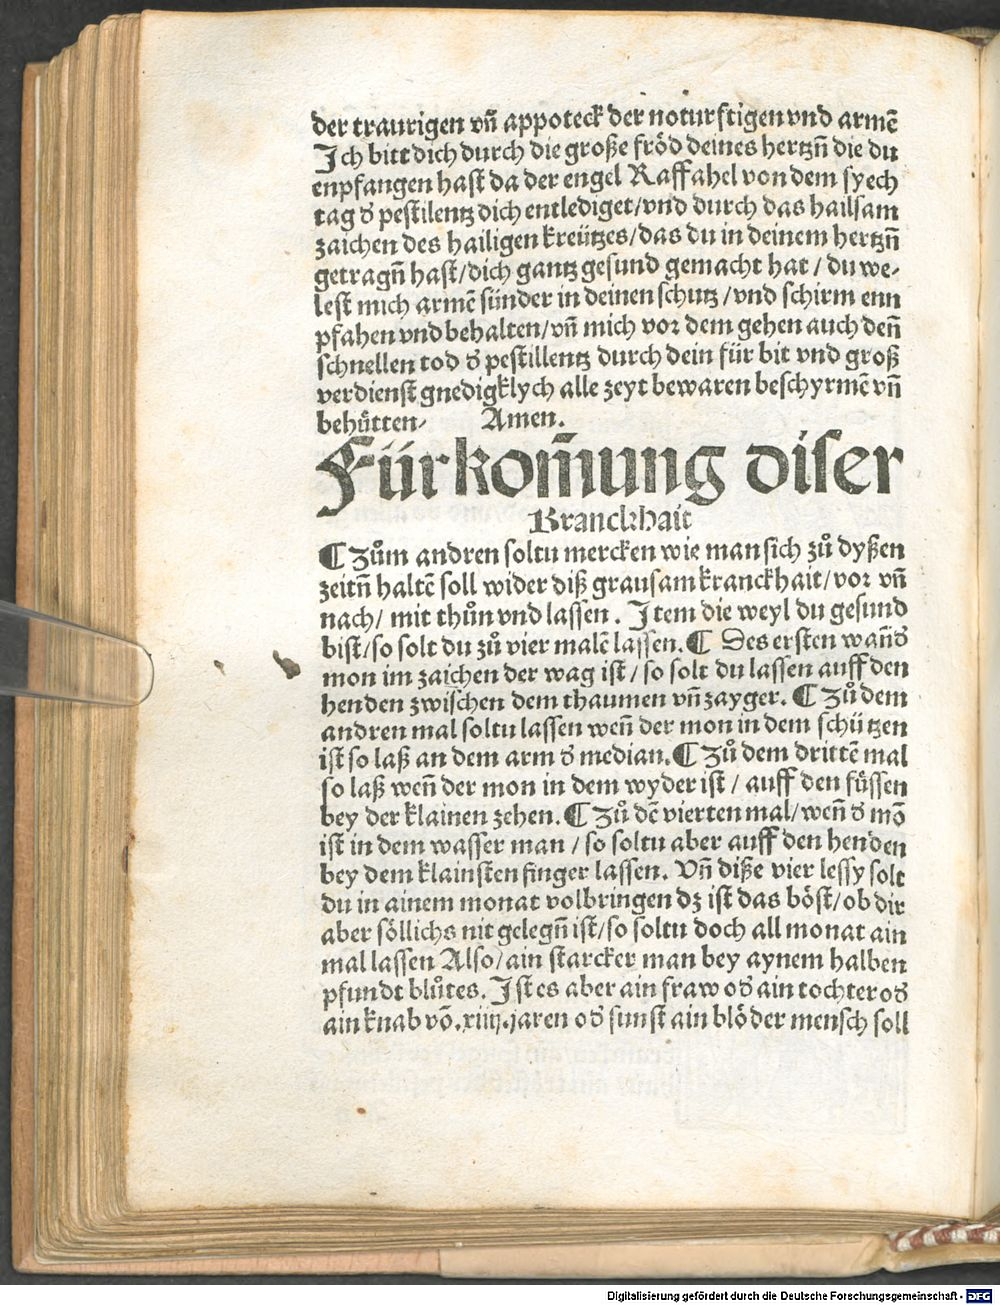 der traurigen vñ appoteck der noturftigen vnd armē
Ich bitt dich durch die große fröd deines hertzñ die du
enpfangen hast da der engel Raffahel von dem syech
tag ď pestilentz dich entlediget/vnd durch das hailsam
zaichen des hailigen kreützes/das du in deinem hertzñ
getragñ hast/dich gantz gesund gemacht hat/du we-
lest mich armē sünder in deinen schutz/vnd schirm enn
pfahen vnd behalten/vñ mich vor dem gehen auch deñ
schnellen tod ď pestillentz durch dein für bit vnd groß
verdienst gnedigklych alle zeyt bewaren beschyrmē vñ
behütten/ Amen.
Fürkom̄ung diser
Kranckhait
¶ Zům andren soltu mercken wie man sich zů dyßen
zeitñ haltē soll wider diß grausam kranckhait/vor vñ
nach/ mit thůn vnd lassen. Item die weyl du gesund
bist/so solt du zů vier malē lassen. ¶ Des ersten wañď
mon im zaichen der wag ist/so solt du lassen auff den
henden zwischen dem thaumen vñ zayger. ¶ Zů dem
andren mal soltu lassen weñ der mon in dem schützen
ist so laß an dem arm ď median. ¶ Zů dem drittē mal
so laß weñ der mon in dem wyder ist/ auff den füssen
bey der klainen zehen. ¶ Zů dē vierten mal/weñ ď mō
ist in dem wasser man/so soltu aber auff den henden
bey dem klainsten finger lassen. Vñ diße vier lessy solt
du in ainem monat volbringen dz ist das böst/ob dir
aber söllichs nit gelegñ ist/so soltu doch all monat ain
mal lassen Also/ain starcker man bey aynem halben
pfundt blůtes. Ist es aber ain fraw oď ain tochter oď
ain knab vō.xiiij.jaren oď sunst ain blöder mensch soll
Digitalisierung gefördert durch die Deutsche Forschungsgemeinschaft - DFG